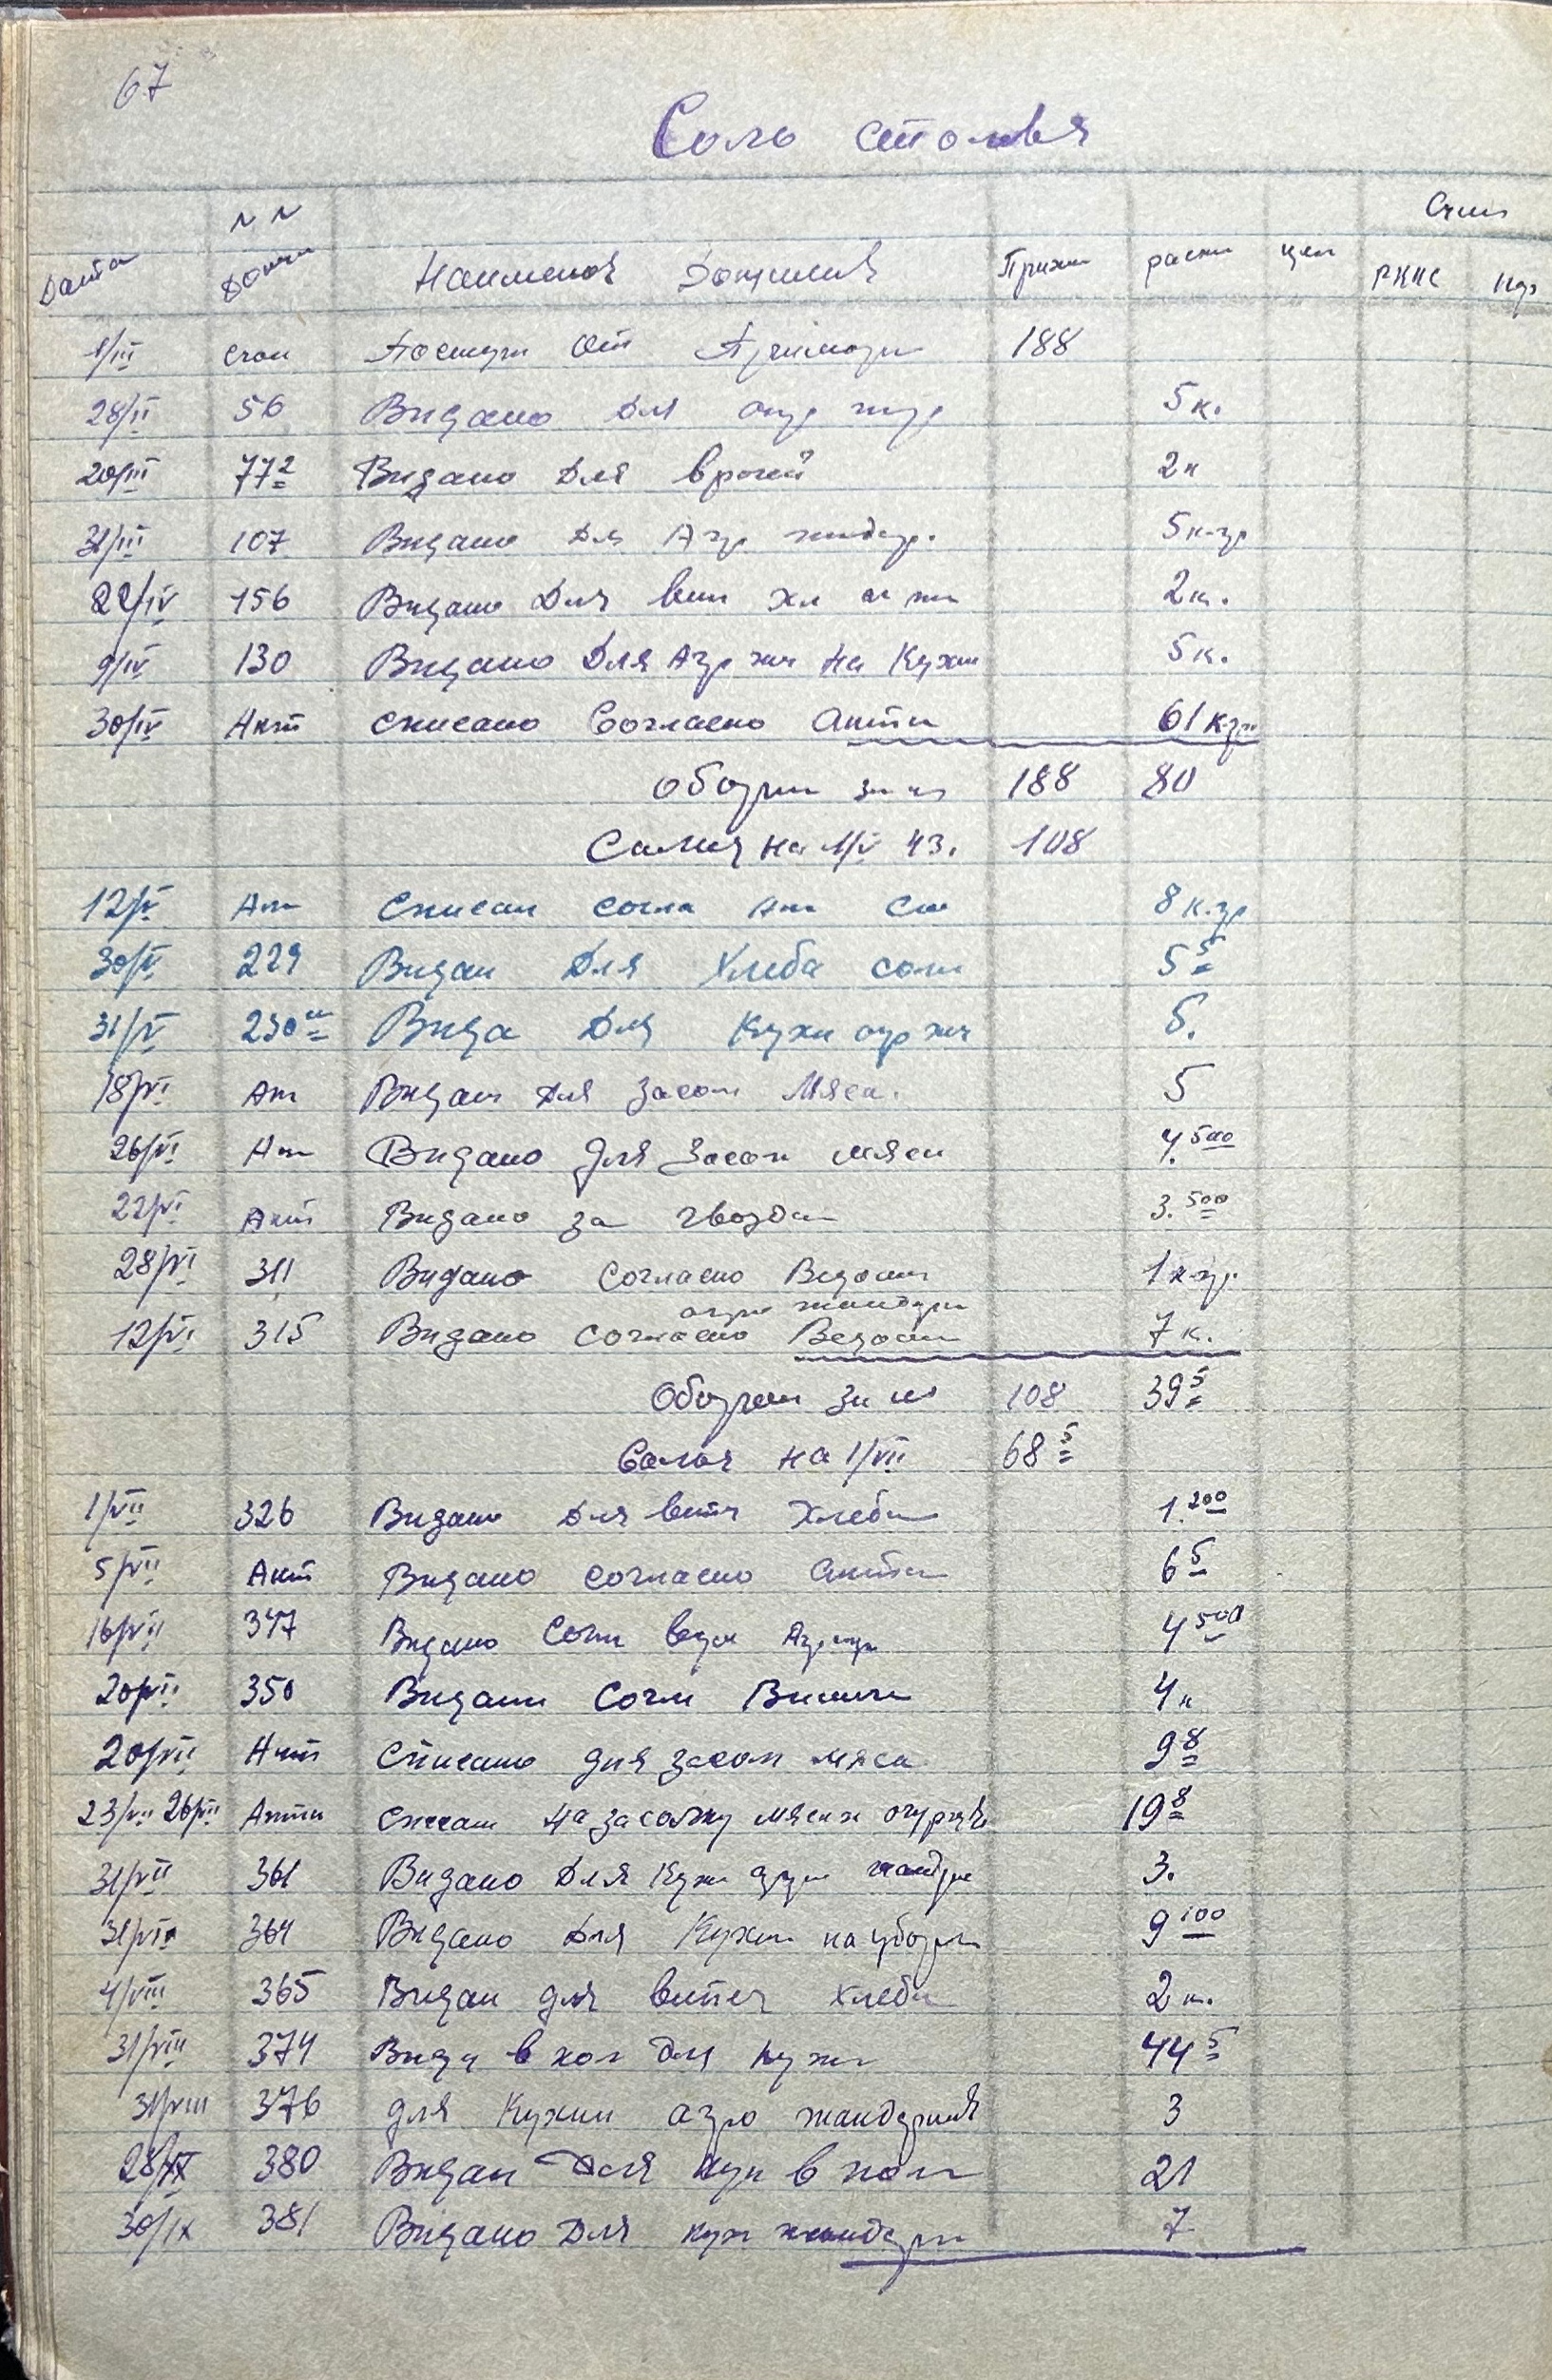 67
Соль столовя
Счит
Дата №№ Докум Наименов Документов Приход расход цен РККС
1/III счет Поступи От 188
28/II 56 Видано Для 5 к.
20/III 77 2 Видано Для врачей 2 к
31/III 107 Видано Для Агр жандар. 5 к-гр
22/IV 156 Видано Для вип хл 2 к.
9/IV 130 Видано Для Агр жан На Кухни 5 к.
30/IV Акт списано Согласно Акта 61 к-гр
Ободни за 188 80
Сальдо на 1/V 43. 108
12/V Акт Списан согла Акт 8 к.гр
30/V 229 Видан Для Хлеба соли 5 5
31/V 230 Вида Для Кухни агр жан 5.
18/VI Акт Видан Для засол Мяса. 5
26/VI Акт Видано для Засол мяса 4.500
22/VI Акт Видано за гвозди 3.500
28/VI 311 Видано Согласно Ведом 1 к-гр.
агро жандарм
12/VI 315 Видано согласно Ведом 7 к.
Ободни за 108 39 5
Сальдо на 1/VII 68 5
1/VII 326 Видано Для випеч Хлеба 1.200
5/VII Акт Видано согласно Акта 6 5
16/VII 347 Видано Согл ведом Агр 4 500
20/VII 350 Видани Согл 4 к
20/VII Акт Списано для засол мяса 9 8
23/VII 26/VII Акти Списан На засолку мяса и огурцов 19 8
31/VII 361 Видано Для Кухни агро жандар 3.
31/VII 364 Видано Для Кухни на уборки 9 100
4/VIII 365 Видан для випеч хлеба 2 к.
31/VIII 374 Вида в кол для кухни 44 5
31/VIII 376 для Кухни агро жандармов 3
28/IX 380 Видан Для кух в кол 21
30/IX 381 Видано Для кух жандарм 7